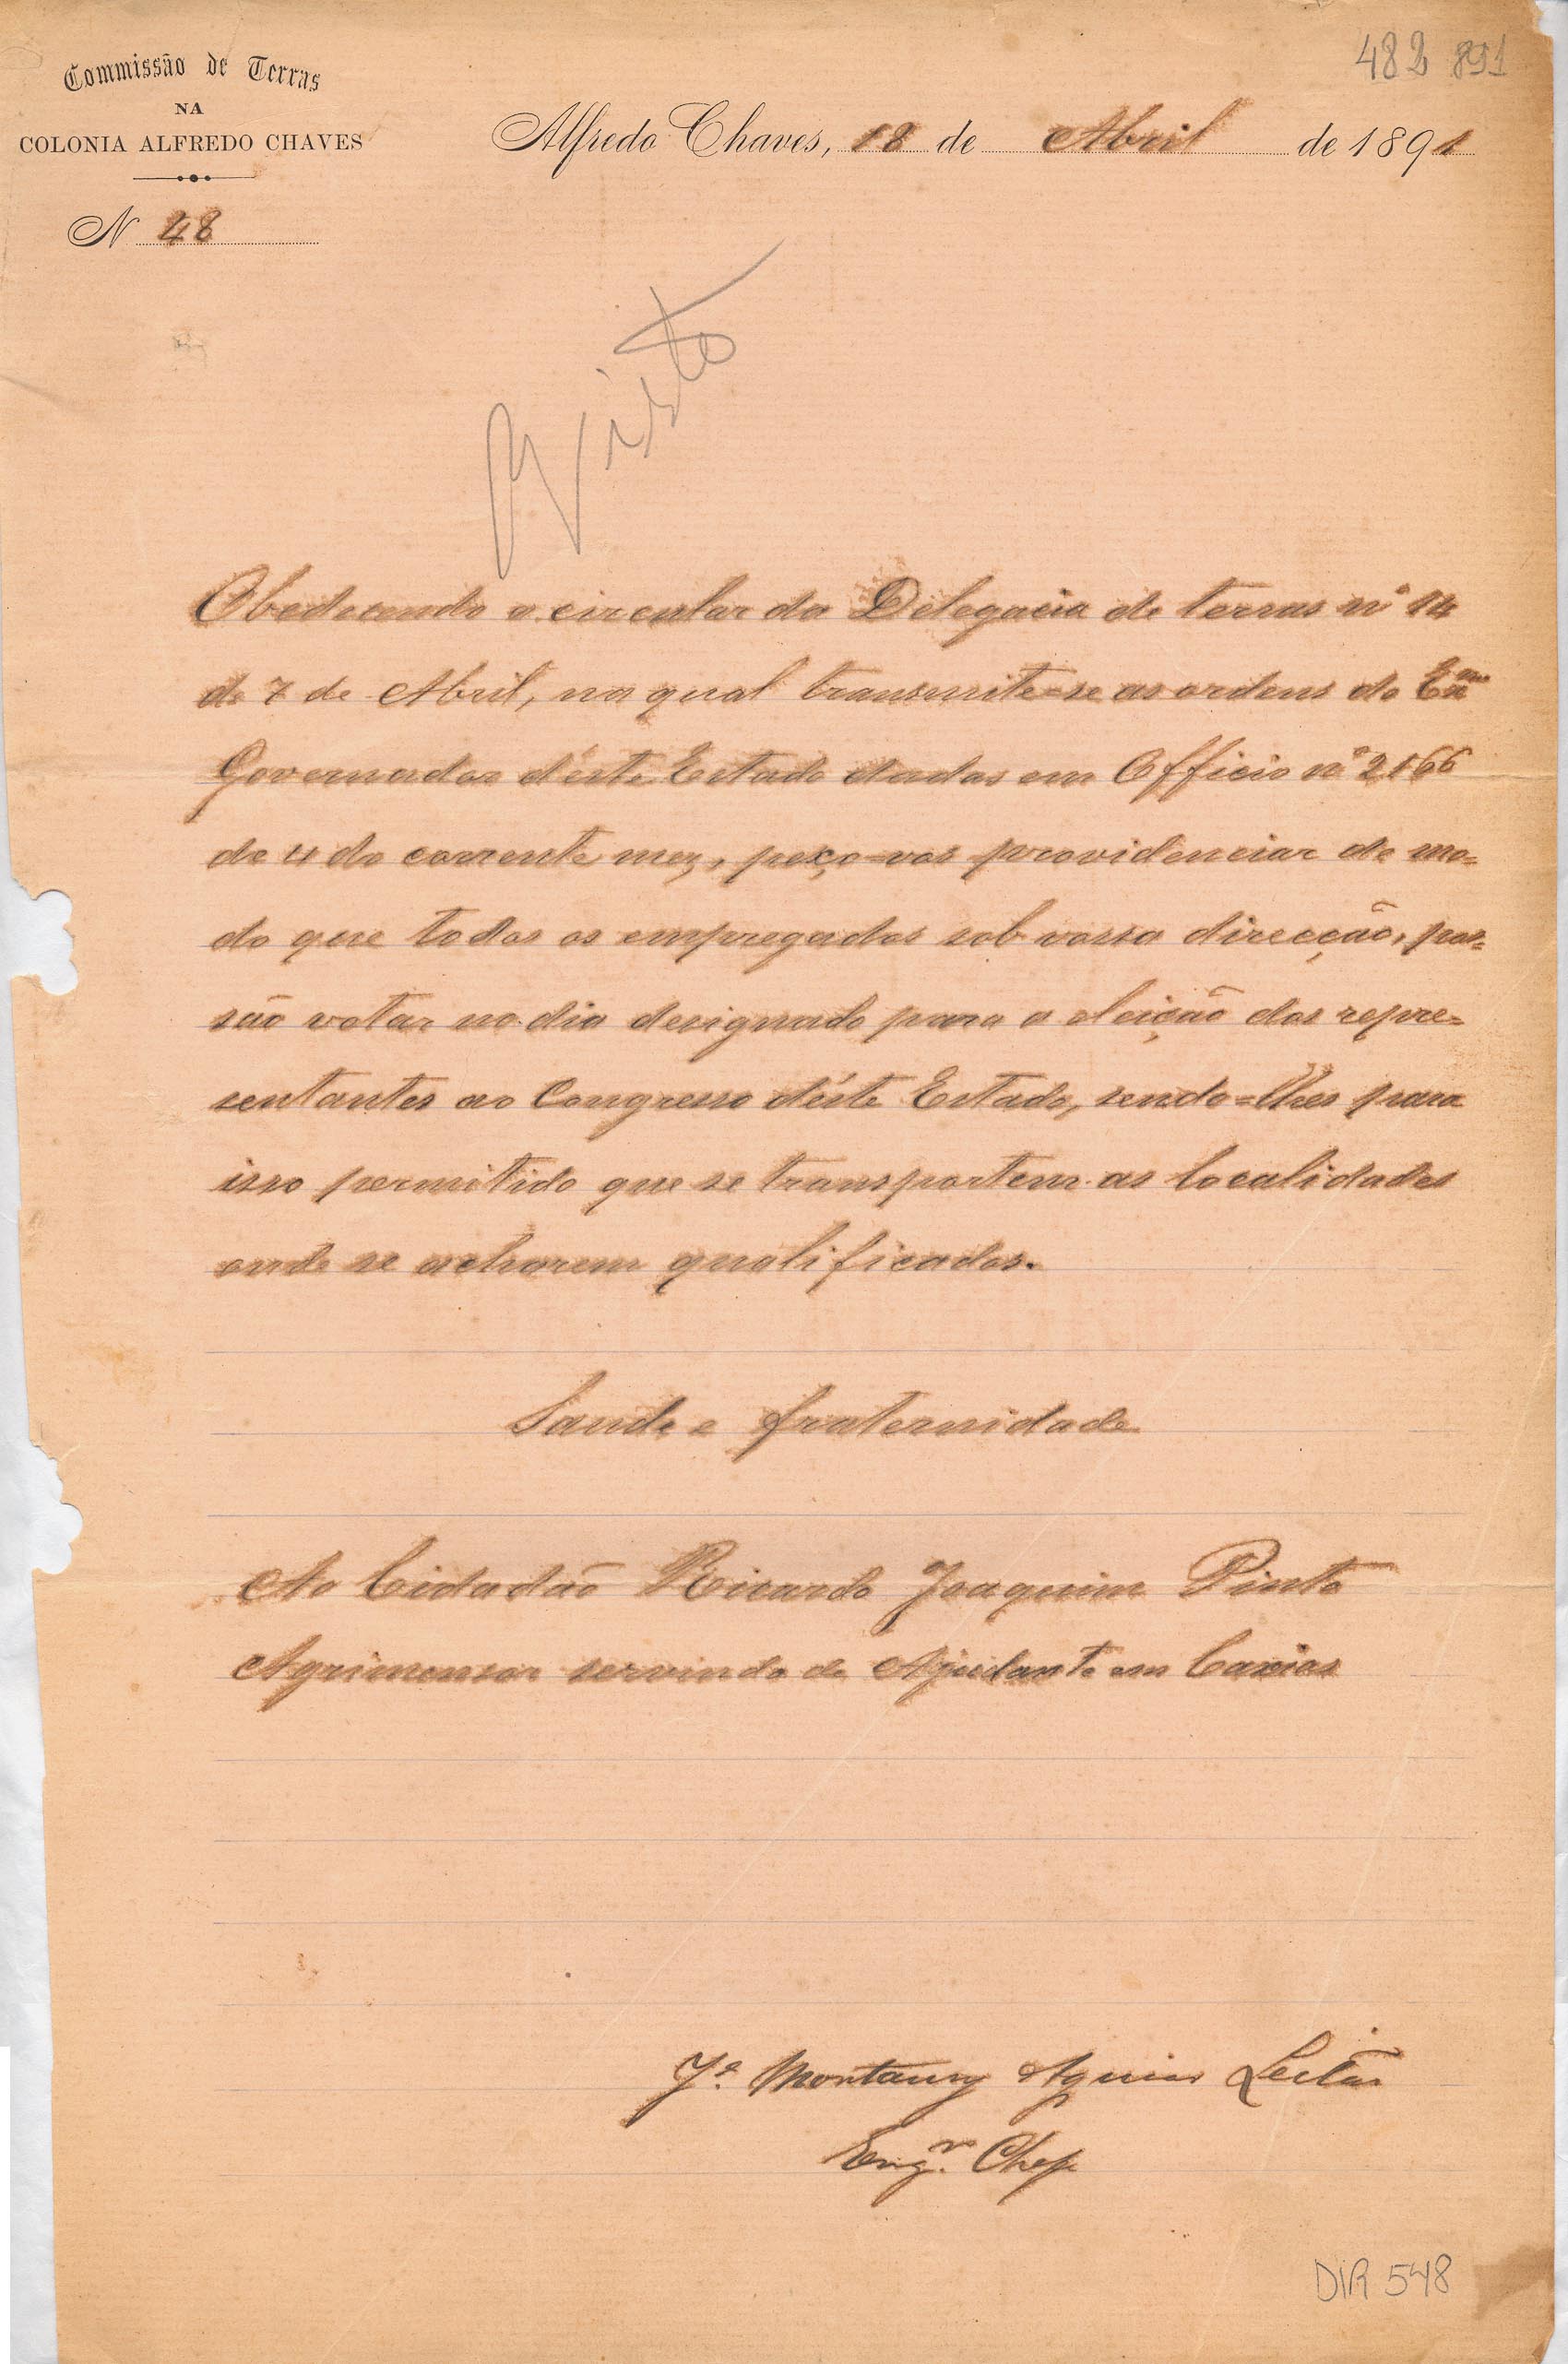 482 891
Commissão de Terras
NA
COLONIA ALFREDO CHAVES
Alfredo Chaves, 18 de Abril de 1891
N 48
Visto
Obedecendo a circular da Delegacia de terras nº 14
de 7 de Abril, na qual transmite-se as ordens do Exmo
Governador d'este Estado dadas em Officio nº 2166
de 4 do corrente mez, peço-vos providenciar de mo=
do que todos os empregados sob vossa direcção, pos=
são votar no dia designado para a eleição dos repre=
sentantes ao Congresso d'este Estado, sendo=lhes para
isso permitido que se transportem as localidades
onde se acharem qualificados.
Saude e fraternidade
Ao Cidadão Ricardo Joaquim Pinto
Agrimensor servindo de Ajudante em Caxias
Jé. Montaury Aguiar Leitão
Engr. Chefe
DIR 548